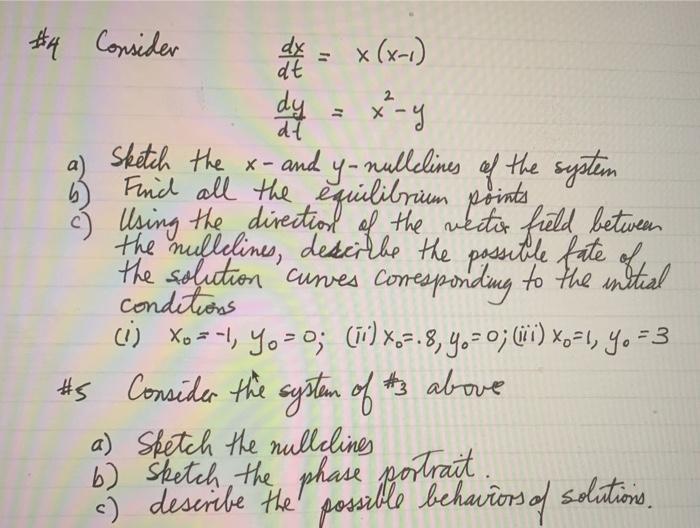 #4 Consider dx/dt = x(x-1)
dy/dt = x²-y
a) Sketch the x- and y-nullclines of the system
b) Find all the equilibrium points
c) Using the direction of the vector field between
the nullclines, describe the possible fate of
the solution curves corresponding to the initial
conditions
(i) x₀=-1, y₀=0; (ii) x₀=.8, y₀=0; (iii) x₀=1, y₀=3
#5 Consider the system of #3 above
a) Sketch the nullclines
b) Sketch the phase portrait.
c) describe the possible behaviors of solutions.